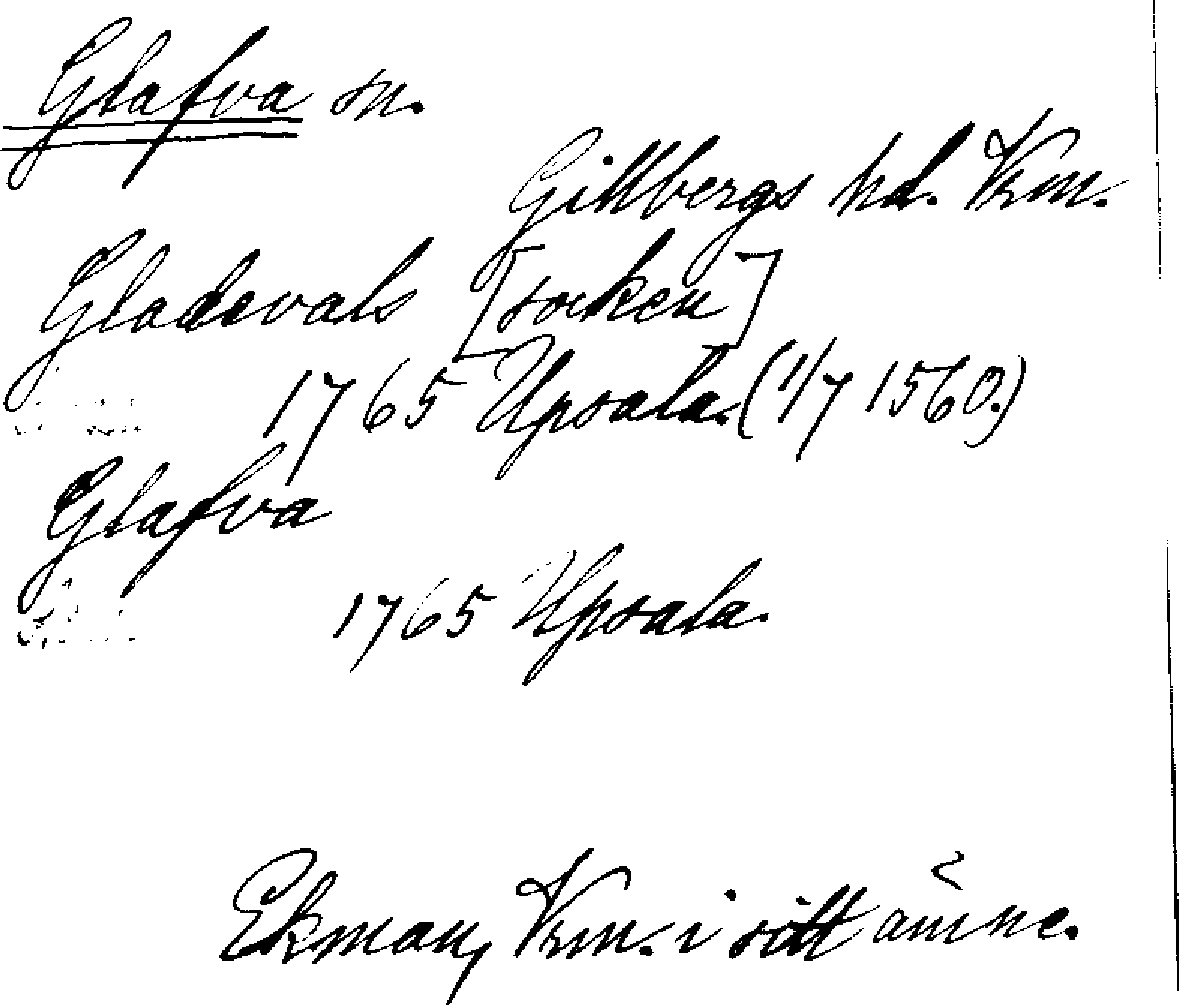 Glafva sn.
Gillbergs hd. Vrm.
Gladevals [socken]
1765 Upsala. (1/7 1560.)
Glafva
1765 Upsala.
Ekman, Vrm. i sitt ämne.